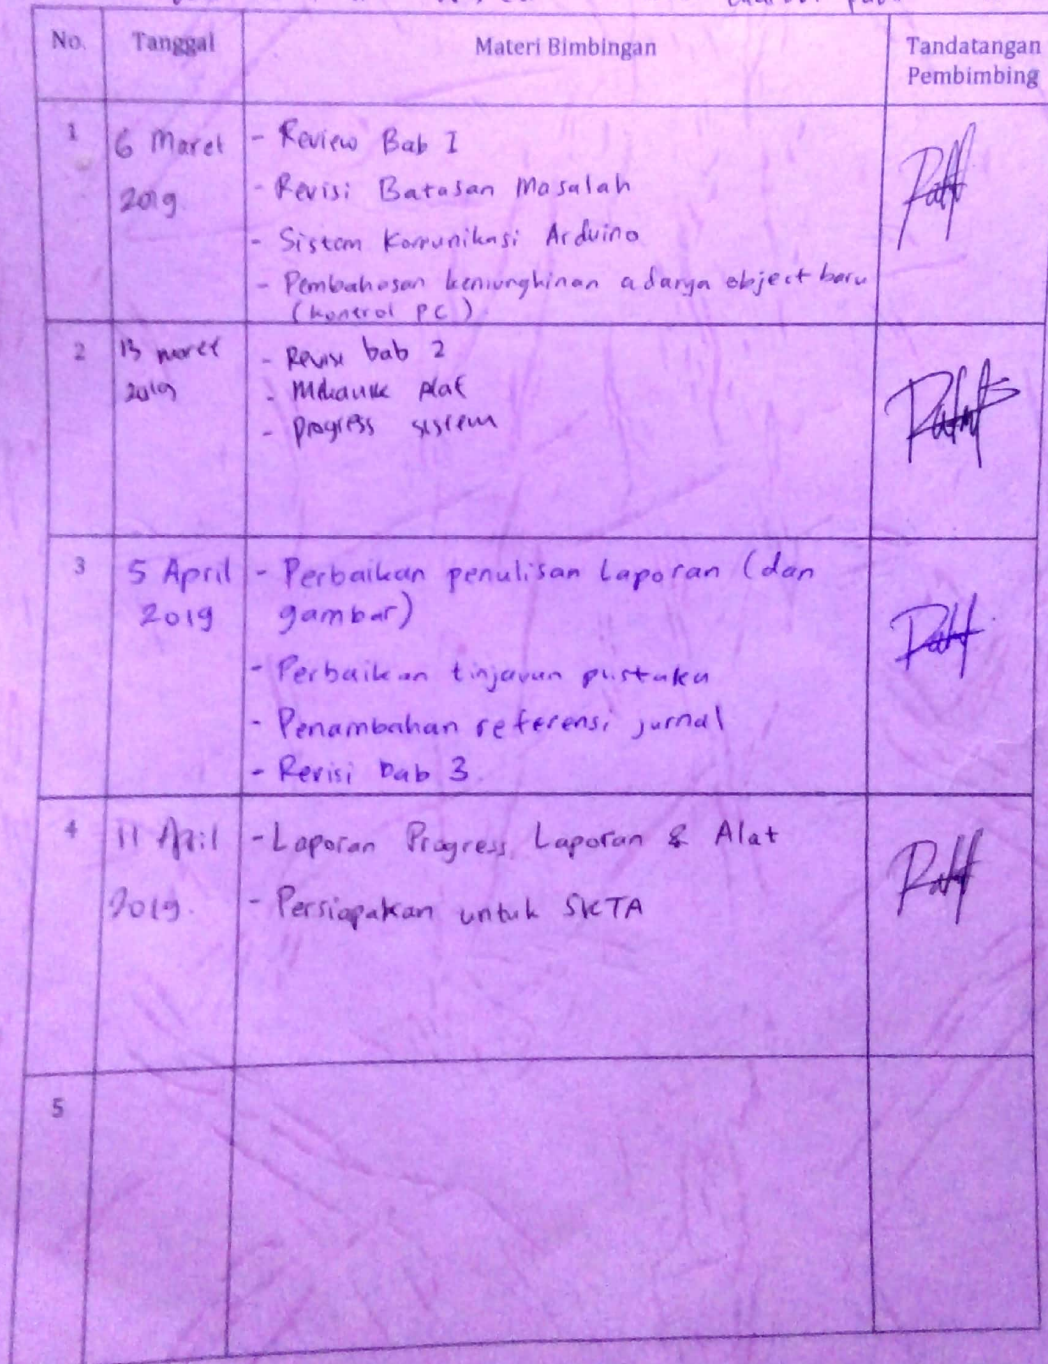 No. Tanggal Materi Bimbingan Tandatangan
Pembimbing
1 6 Maret - Review Bab I
2019. - Revisi Batasan Masalah
- Sistem Komunikasi Arduino
- Pembahasan kemungkinan adanya object baru
(kontrol PC)
2 13 maret - Revisi bab 2
2019 - Mekanik alat
- progress sistem
3 5 April - Perbaikan penulisan Laporan (dan
2019 gambar)
- Perbaikan tinjauan pustaka
- Penambahan referensi jurnal
- Revisi bab 3.
4 11 April - Laporan Progress Laporan & Alat
2019. - Persiapakan untuk SKTA
5